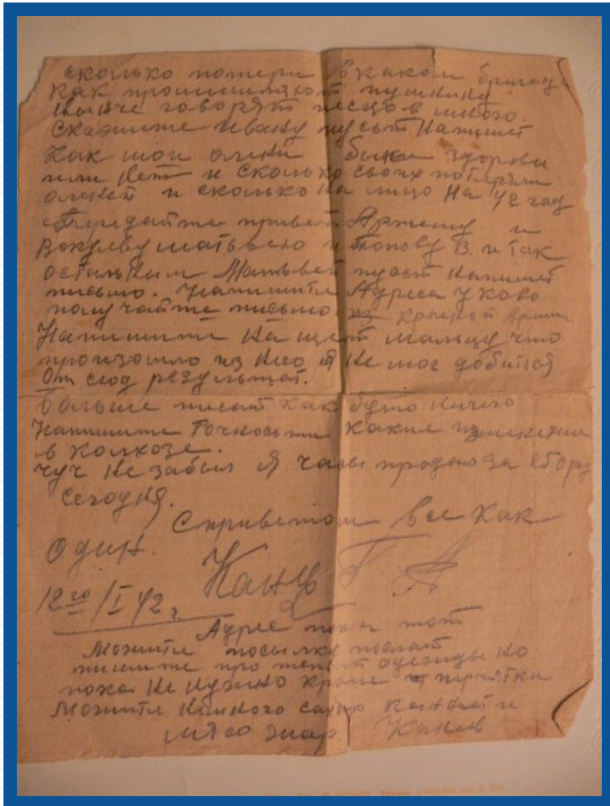 сколько потери в каком бригаде
как промишляют пушнину
нынче говорят песцов много.
Скажите Ивану пусть напишет
как мои олени быки здоровы
или нет и сколько своих потеряли
оленей и сколько на лицо на 42 год
Передайте привет Артему и
Вокуеву Матвею и Попову В. и так
остальным Матьвей пусть напишет
письмо. Напишите Адреса у ково
получайте письмо из красной Армии
Напишите на щет что
произошло из него я не мог добится
От сюд результат.
больше писат как будто ничего
Напишите какие изменения
в колхозе.
чуч не забыл я часы продаю за 250 ру
сегодня.
С приветом все как
один. Канев П А
12го/I 42 г.
Адрес пока тот
Можите посылку послат
пишите про одежды но
пока не нужно кроме
Можите немного сахар и
мясо Канев